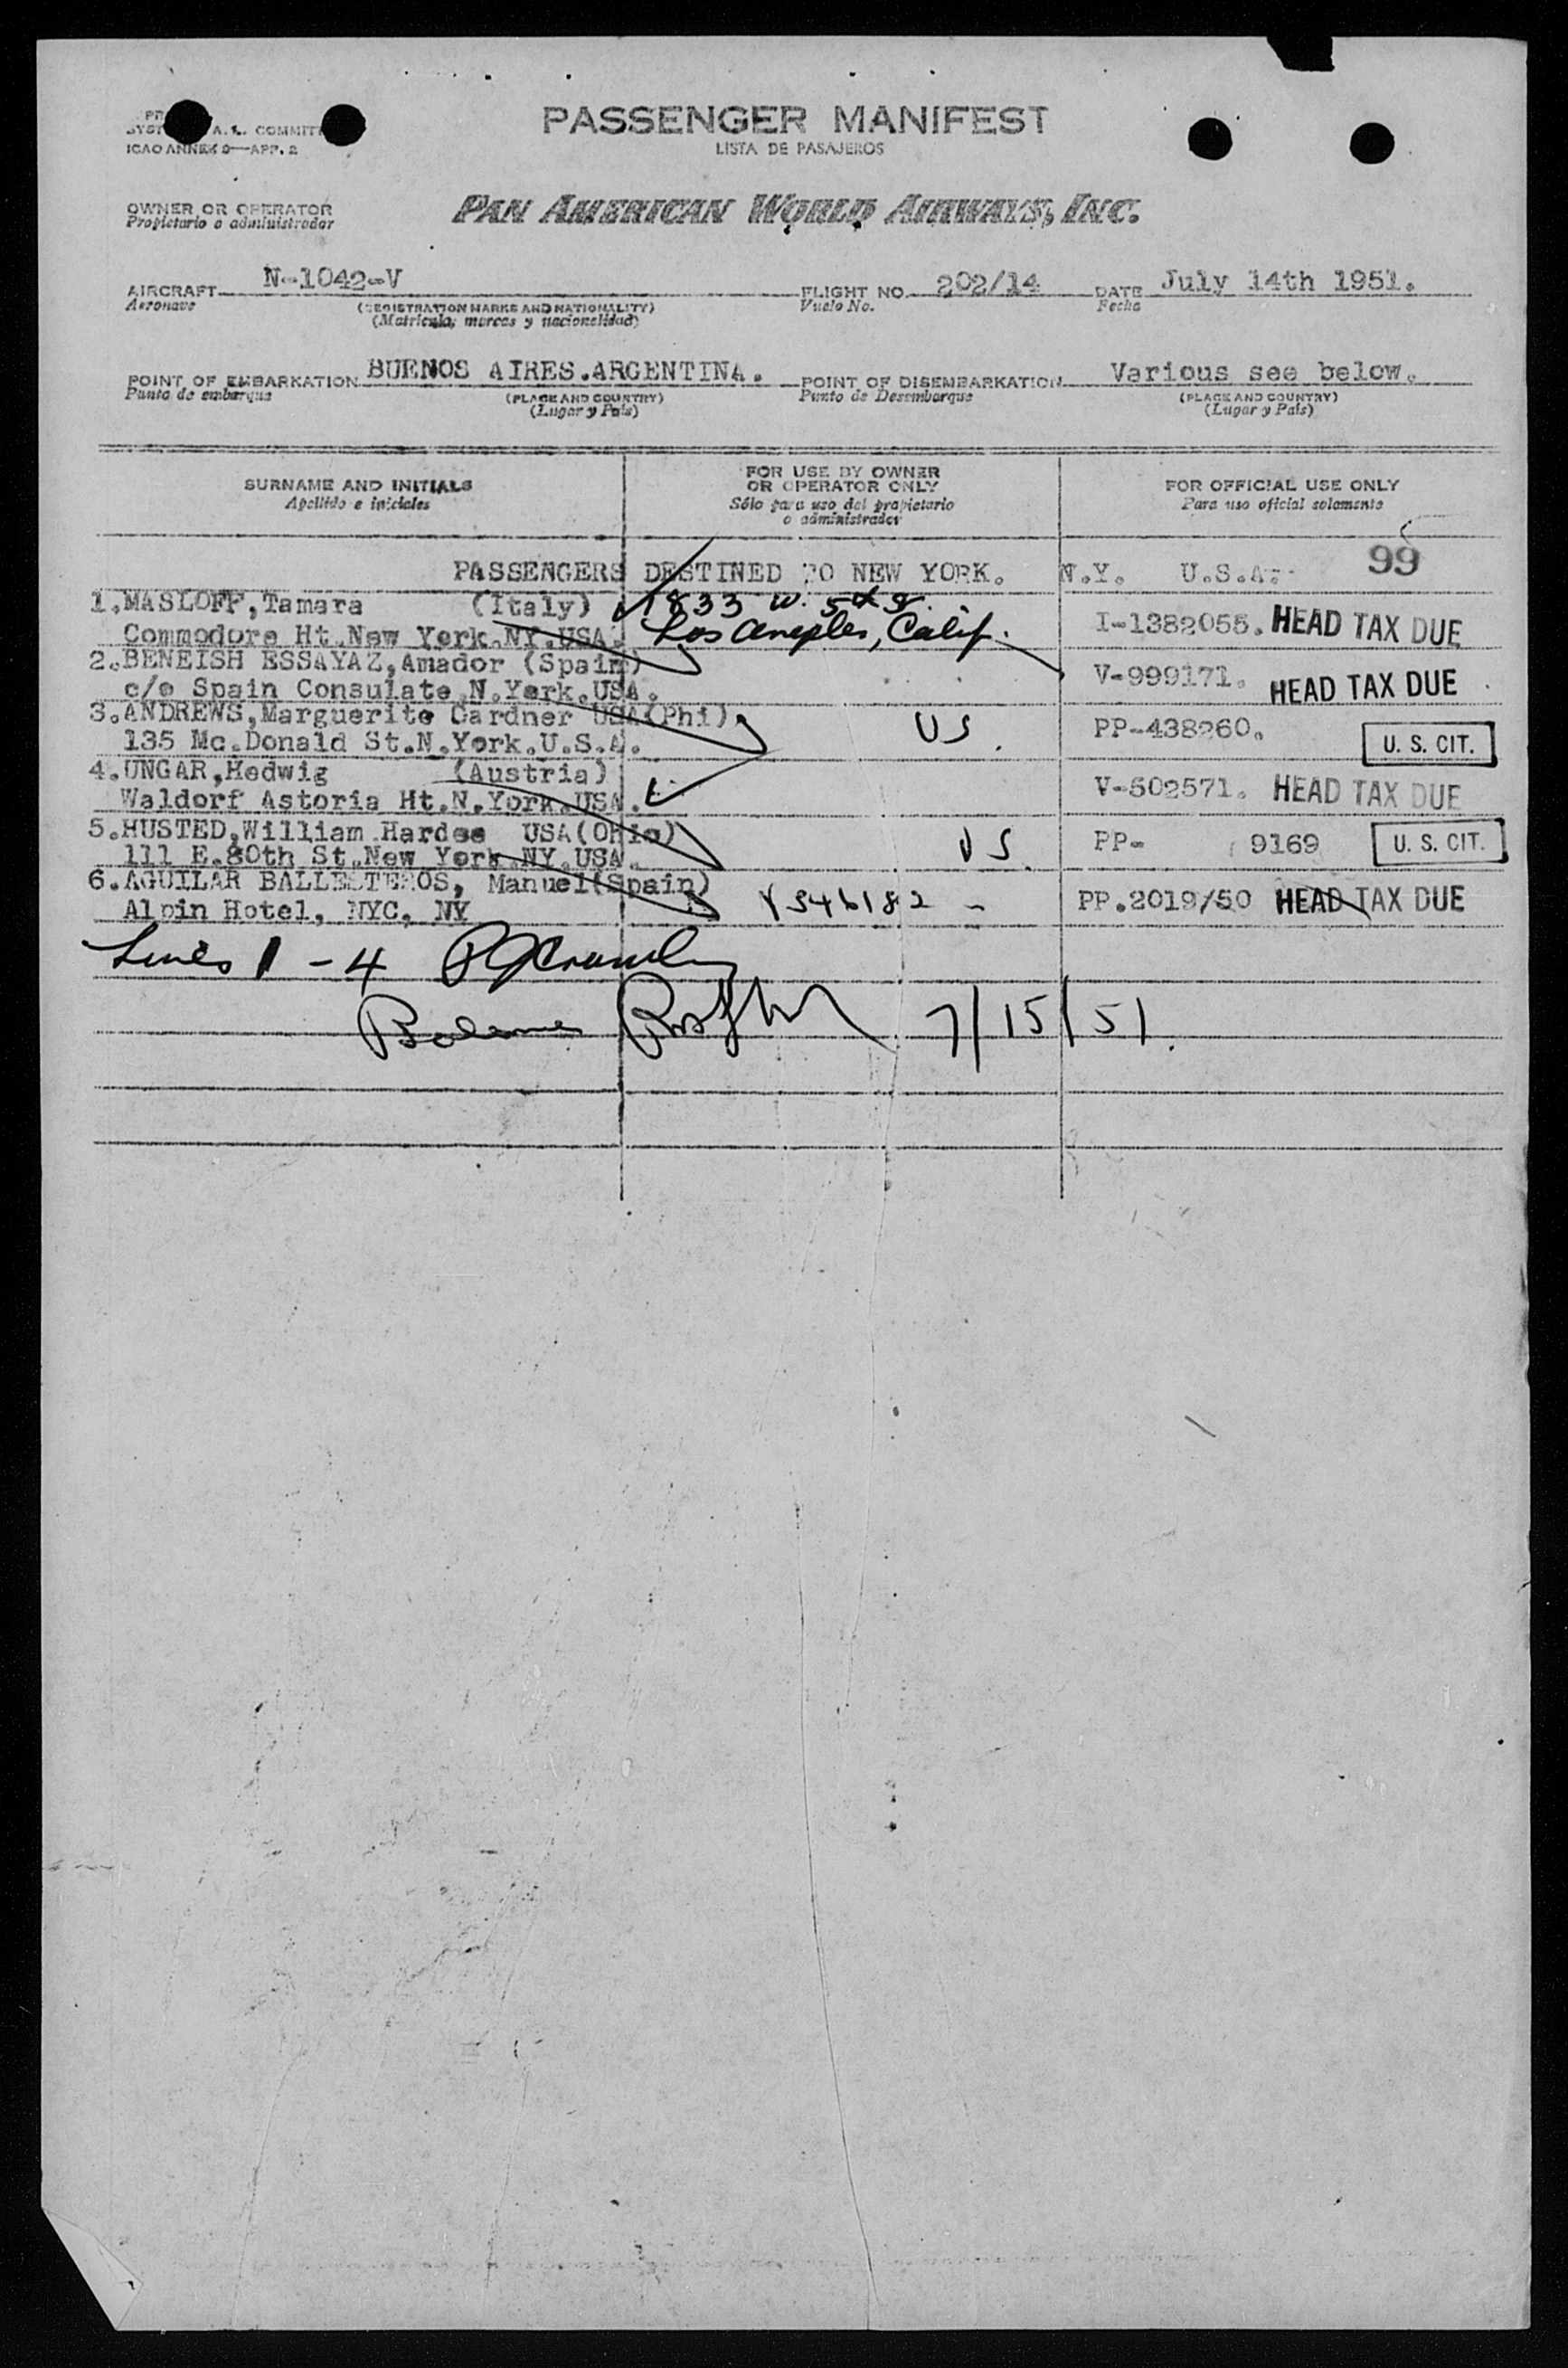 PASSENGER MANIFEST
LISTA DE PASAJEROS
A. L. COMMIT
ICAO ANNEX 9—APP. 2
OWNER OR OPERATOR
Propietario o administrador
PAN AMERICAN WORLD AIRWAYS, INC.
AIRCRAFT N-1042-V FLIGHT NO. 202/14 DATE July 14th 1951.
Aeronave (REGISTRATION MARKS AND NATIONALITY) Vuelo No. Fecha
(Matrícula, marcas y nacionalidad)
POINT OF EMBARKATION BUENOS AIRES.ARGENTINA. POINT OF DISEMBARKATION Various see below.
Punto de embarque (PLACE AND COUNTRY) Punto de Desembarque (PLACE AND COUNTRY)
(Lugar y País) (Lugar y País)
SURNAME AND INITIALS FOR USE BY OWNER OR OPERATOR ONLY FOR OFFICIAL USE ONLY
Apellido e iniciales Sólo para uso del propietario o administrador Para uso oficial solamente
PASSENGERS DESTINED TO NEW YORK. N.Y. U.S.A. 99
1.MASLOFF,Tamara (Italy) 1833 W. 5th St. I-1382055. HEAD TAX DUE
Commodore Ht.New York.NY.USA. Los Angeles, Calif.
2.BENEISH ESSAYAZ,Amador (Spain) V-999171. HEAD TAX DUE
c/o Spain Consulate.N.York.USA.
3.ANDREWS,Marguerite Gardner USA(Phi) US. PP-438260. U. S. CIT.
135 Mc.Donald St.N.York.U.S.A.
4.UNGAR,Hedwig (Austria) V-502571. HEAD TAX DUE
Waldorf Astoria Ht.N.York.USA.
5.HUSTED,William Hardee USA(Ohio) US PP- 9169 U. S. CIT.
111 E.80th St.New York.NY.USA.
6.AGUILAR BALLESTEROS, Manuel(Spain) V346182 - PP.2019/50 HEAD TAX DUE
Alpin Hotel, NYC, NY
Lines 1 - 4
7/15/51.